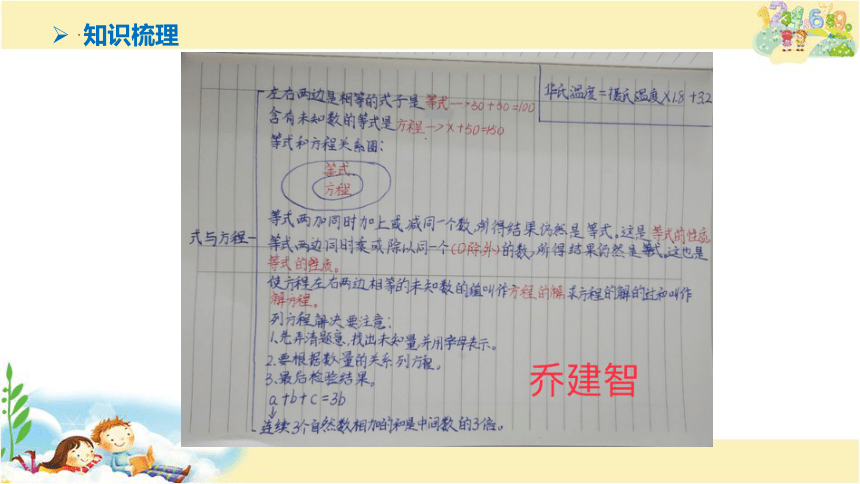 ➢ 知识梳理
左右两边是相等的式子是等式→50+50=100
华氏温度=摄氏温度×1.8+32
含有未知数的等式是方程→x+50=150
等式和方程关系图:
等式
方程
等式两加同时加上或减同一个数,所得结果仍然是等式。这是等式的性质
式与方程
等式两边同时乘或除以同一个(0除外)的数,所得结果仍然是等式。这也是
等式的性质。
使方程左右两边相等的未知数的值叫作方程的解求方程的解的过和叫作
解方程。
列方程解决要注意:
1.先弄清题意,找出未知量,并用字母表示。
2.要根据数量的关系列方程。
3.最后检验结果。
a+b+c=3b
连续3个自然数相加的和是中间数的3倍。
乔建智